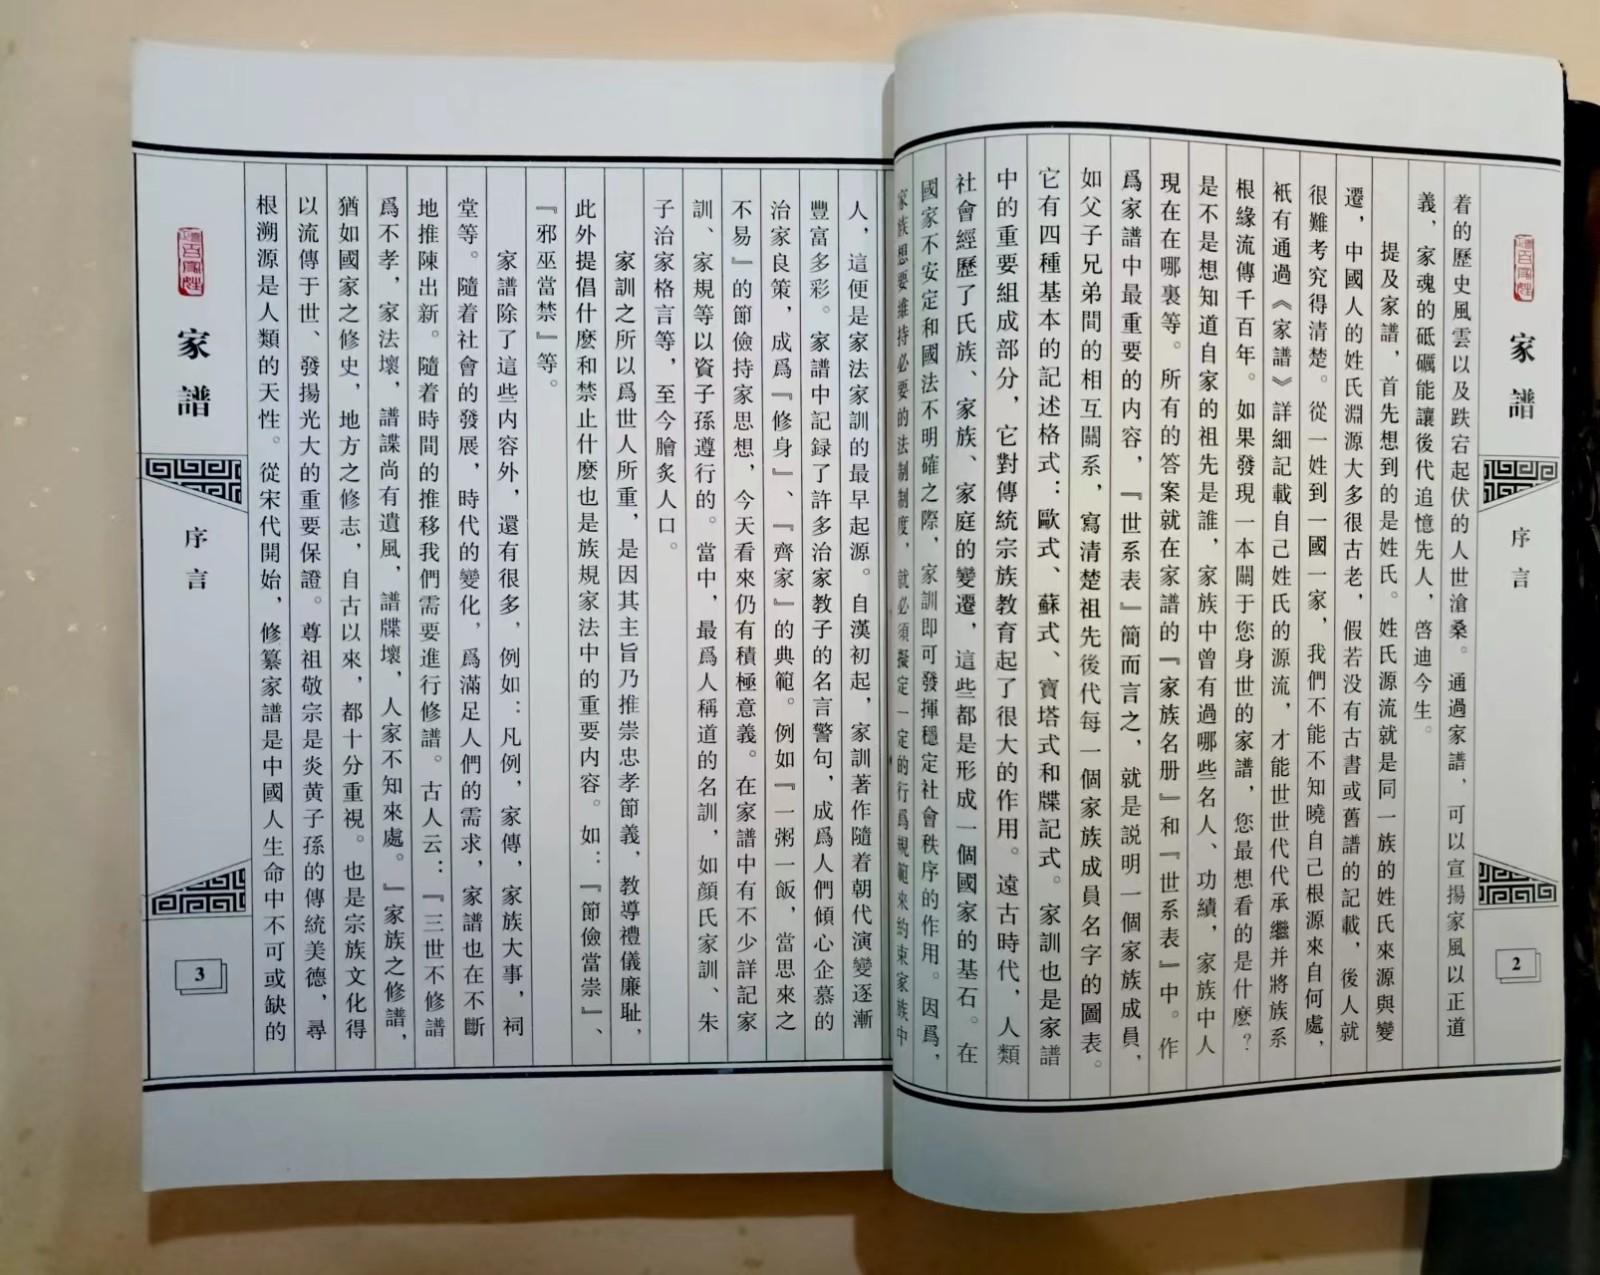 家譜
序言
2
着的歷史風雲以及跌宕起伏的人世滄桑。通過家譜，可以宣揚家風以正道
義、家魂的砥礪能讓後代追憶先人，啓迪今生。
提及家譜，首先想到的是姓氏。姓氏源流就是同一族的姓氏來源與變
遷，中國人的姓氏淵源大多很古老，假若没有古書或舊譜的記載，後人就
很難考究得清楚。從一姓到一國一家，我們不能不知曉自己根源來自何處，
衹有通過《家譜》詳細記載自己姓氏的源流，才能世世代代承繼并將族系
根緣流傳千百年。如果發現一本關于您身世的家譜，您最想看的是什麽？
是不是想知道自家的祖先是誰，家族中曾有過哪些名人、功績，家族中人
現在在哪裏等。所有的答案就在家譜的『家族名册』和『世系表』中。作
爲家譜中最重要的内容，『世系表』簡而言之，就是説明一個家族成員，
如父子兄弟間的相互關系，寫清楚祖先後代每一個家族成員名字的圖表。
它有四種基本的記述格式：歐式、蘇式、寶塔式和牒記式。家訓也是家譜
中的重要組成部分，它對傳統宗族教育起了很大的作用。遠古時代，人類
社會經歷了氏族、家族、家庭的變遷，這些都是形成一個國家的基石。在
國家不安定和國法不明確之際，家訓即可發揮穩定社會秩序的作用。因爲，
家族想要維持必要的法制制度，就必須擬定一定的行爲規範來約束家族中
人，這便是家法家訓的最早起源。自漢初起，家訓著作隨着朝代演變逐漸
豐富多彩。家譜中記録了許多治家教子的名言警句，成爲人們傾心企慕的
治家良策，成爲『修身』、『齊家』的典範。例如『一粥一飯，當思來之
不易』的節儉持家思想，今天看來仍有積極意義。在家譜中有不少詳記家
訓、家規等以資子孫遵行的。當中，最爲人稱道的名訓，如顔氏家訓、朱
子治家格言等，至今膾炙人口。
家訓之所以爲世人所重，是因其主旨乃推崇忠孝節義、教導禮儀廉耻，
此外提倡什麽和禁止什麽也是族規家法中的重要内容。如：『節儉當崇』、
『邪巫當禁』等。
家譜除了這些内容外，還有很多，例如：凡例，家傳，家族大事，祠
堂等。隨着社會的發展，時代的變化，爲滿足人們的需求，家譜也在不斷
地推陳出新。隨着時間的推移我們需要進行修譜。古人云：『三世不修譜
爲不孝，家法壞，譜諜尚有遺風，譜牒壞，人家不知來處。』家族之修譜，
猶如國家之修史，地方之修志，自古以來，都十分重視。也是宗族文化得
以流傳于世、發揚光大的重要保證。尊祖敬宗是炎黄子孫的傳統美德，尋
根溯源是人類的天性。從宋代開始，修纂家譜是中國人生命中不可或缺的
家譜
序言
3